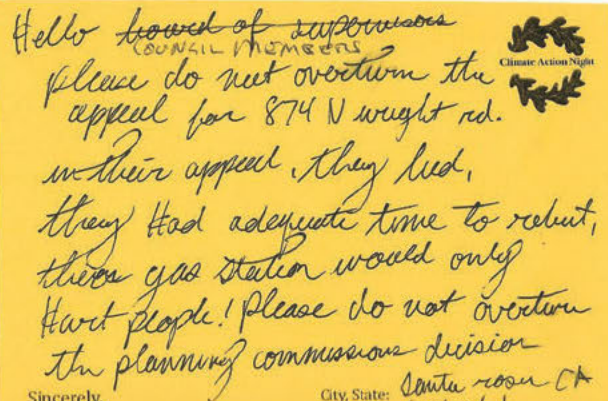 Hello board of supervisors
COUNCIL MEMBERS
Climate Action Night
please do not overturn the
appeal for 874 N wright rd.
in their appeal, they lied,
they Had adequate time to rebut,
theor gas station would only
Hurt people! Please do not overturn
the planning commissions decision
Sincerely
City, State: Santa rosa CA